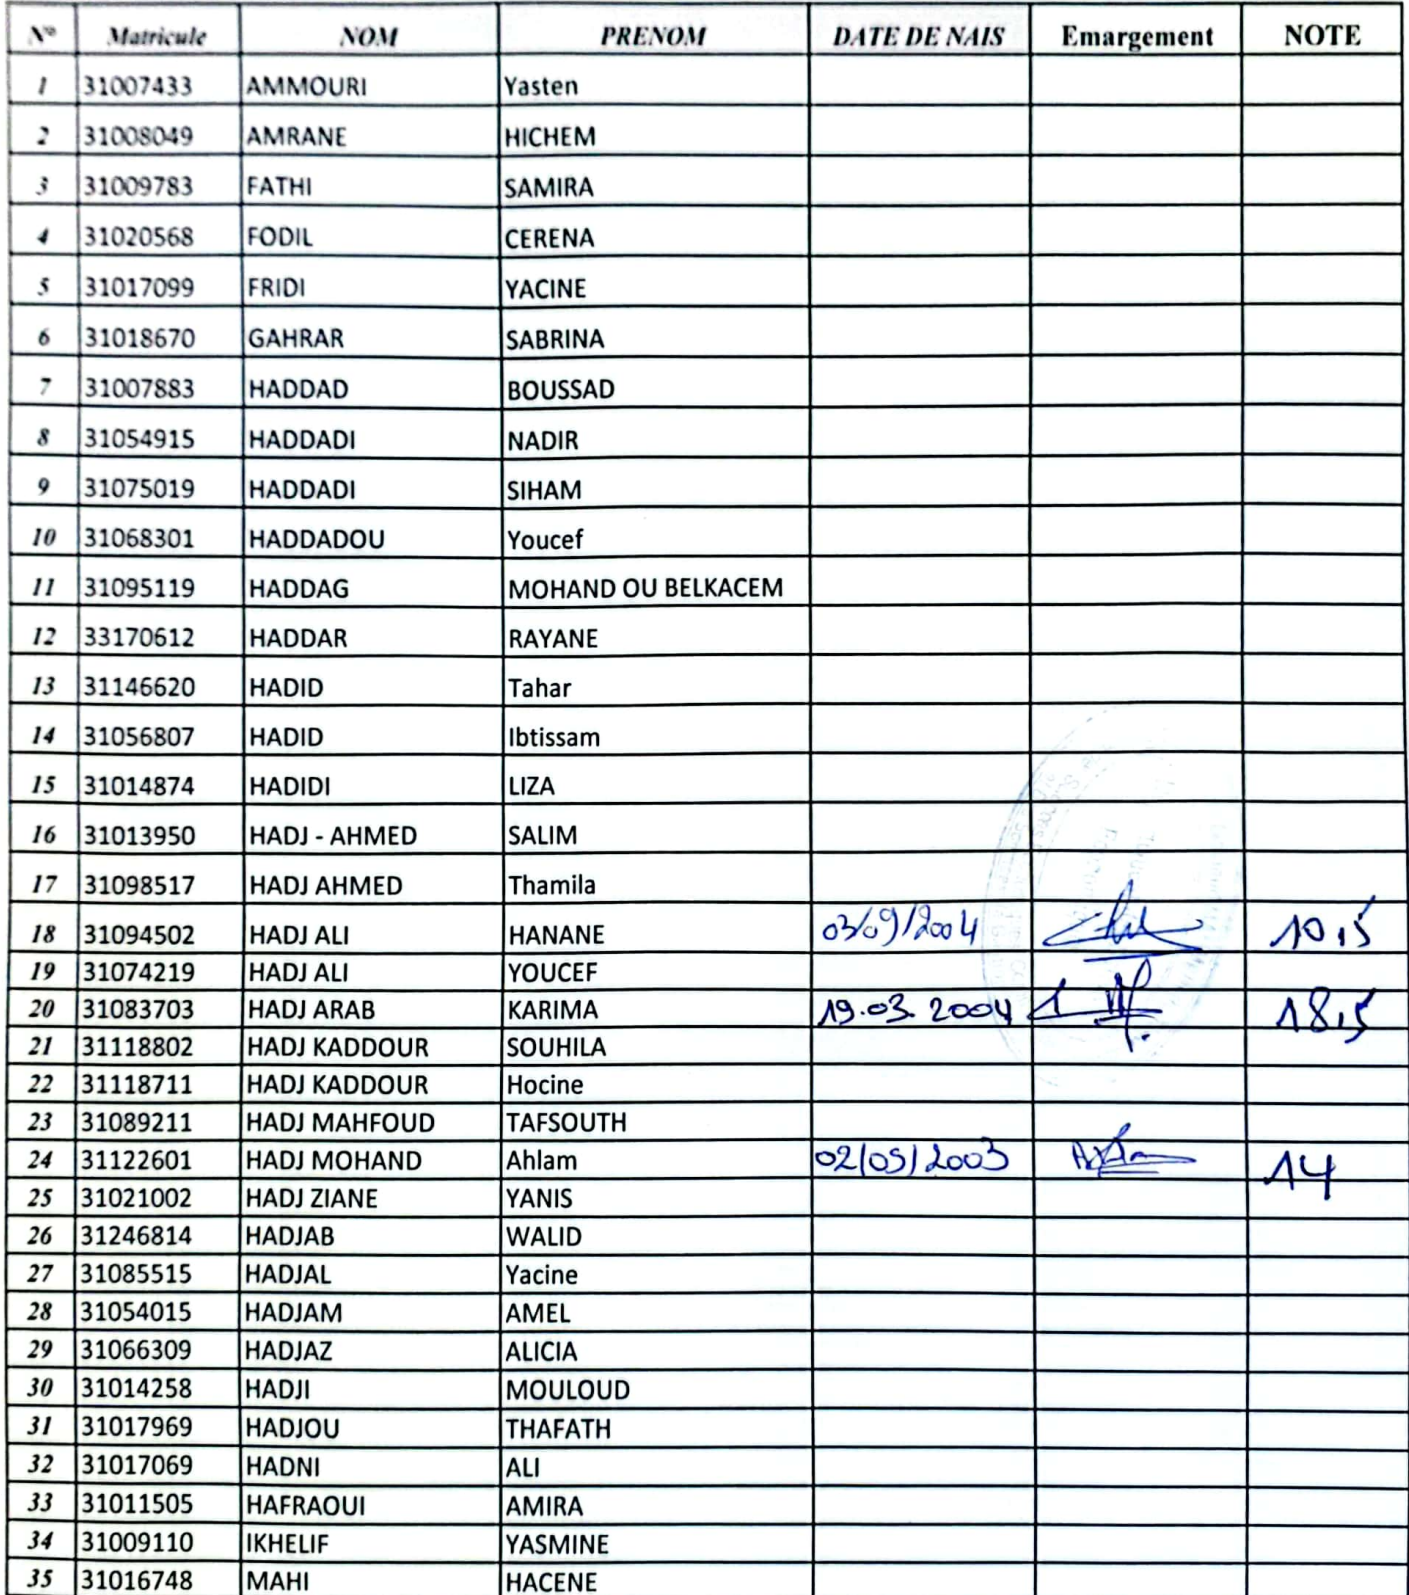 N° Matricule NOM PRENOM DATE DE NAIS Emargement NOTE
1 31007433 AMMOURI Yasten
2 31008049 AMRANE HICHEM
3 31009783 FATHI SAMIRA
4 31020568 FODIL CERENA
5 31017099 FRIDI YACINE
6 31018670 GAHRAR SABRINA
7 31007883 HADDAD BOUSSAD
8 31054915 HADDADI NADIR
9 31075019 HADDADI SIHAM
10 31068301 HADDADOU Youcef
11 31095119 HADDAG MOHAND OU BELKACEM
12 33170612 HADDAR RAYANE
13 31146620 HADID Tahar
14 31056807 HADID Ibtissam
15 31014874 HADIDI LIZA
16 31013950 HADJ - AHMED SALIM
17 31098517 HADJ AHMED Thamila
18 31094502 HADJ ALI HANANE 03/09/2004 10,5
19 31074219 HADJ ALI YOUCEF
20 31083703 HADJ ARAB KARIMA 19.03.2004 18,5
21 31118802 HADJ KADDOUR SOUHILA
22 31118711 HADJ KADDOUR Hocine
23 31089211 HADJ MAHFOUD TAFSOUTH
24 31122601 HADJ MOHAND Ahlam 02/05/2003 14
25 31021002 HADJ ZIANE YANIS
26 31246814 HADJAB WALID
27 31085515 HADJAL Yacine
28 31054015 HADJAM AMEL
29 31066309 HADJAZ ALICIA
30 31014258 HADJI MOULOUD
31 31017969 HADJOU THAFATH
32 31017069 HADNI ALI
33 31011505 HAFRAOUI AMIRA
34 31009110 IKHELIF YASMINE
35 31016748 MAHI HACENE